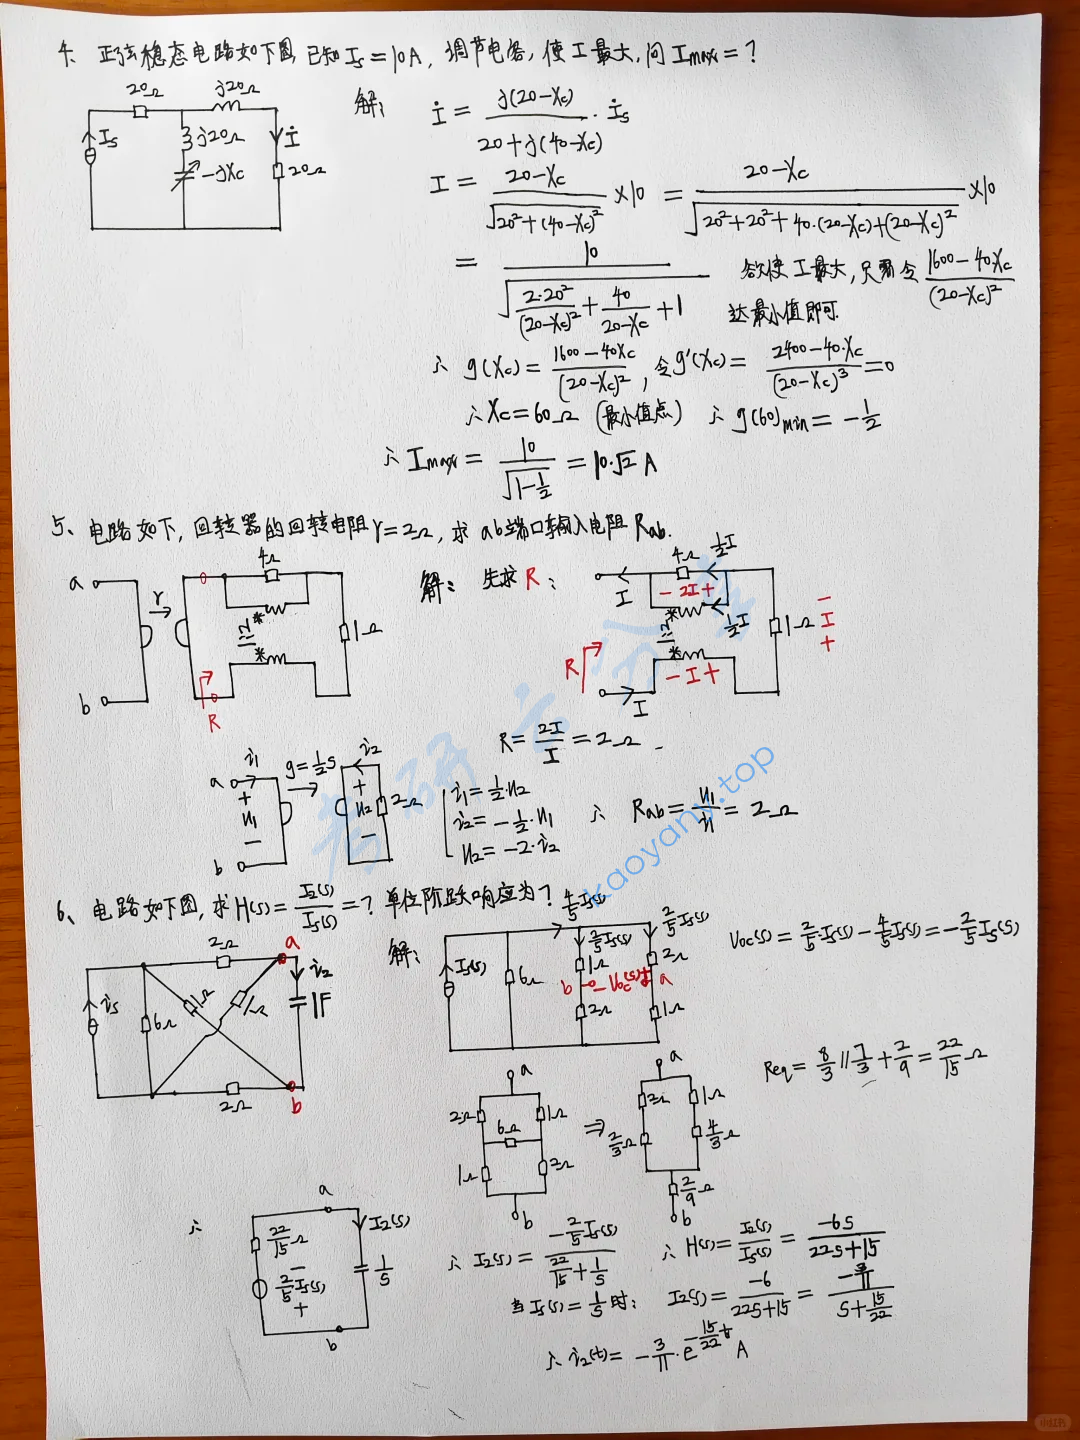 4、正弦稳态电路如下图,已知 Is=10A, 调节电容,使 I 最大,问 Imax=?
20Ω
j20Ω
Is
j20Ω
-jXc
İ
20Ω
解:
İ = j(20-Xc) / (20+j(40-Xc)) · İs
I = (20-Xc) / √(20²+(40-Xc)²) ×10 = (20-Xc) / √(20²+20²+40·(20-Xc)+(20-Xc)²) ×10
= 10 / √(2·20²/(20-Xc)² + 40/(20-Xc) + 1)
欲使 I 最大,只需令 (1600-40Xc)/(20-Xc)²
达最小值即可.
∴ g(Xc) = (1600-40Xc)/(20-Xc)², 令 g'(Xc) = (2400-40·Xc)/(20-Xc)³ =0
∴ Xc=60Ω (最小值点) ∴ g(60)min = -1/2
∴ Imax = 10/√(1-1/2) = 10·√2 A
5、电路如下,回转器的回转电阻 r=2Ω, 求 ab端口输入电阻 Rab.
a
b
r
4Ω
*
*
1Ω
R
解: 先求 R:
I
4Ω
1/2 I
- 2I +
1/2 I
*
*
- I +
1Ω
-
I
+
R
I
R = 2I/I = 2Ω
a
b
i1
+
u1
-
g=1/2 S
i2
+
u2
-
2Ω
i1 = 1/2·u2
i2 = -1/2·u1
u2 = -2·i2
∴ Rab = u1/i1 = 2Ω
6、电路如下图,求 H(s) = I2(s)/Is(s) =? 单位阶跃响应为?
is
6Ω
2Ω
1Ω
1Ω
2Ω
a
b
i2
1F
解:
Is(s)
6Ω
4/5 Is(s)
2/5 Is(s)
1Ω
2Ω
2/5 Is(s)
2Ω
1Ω
b - Uoc(s) + a
Uoc(s) = 2/5·Is(s) - 4/5 Is(s) = -2/5 Is(s)
a
2Ω
1Ω
6Ω
1Ω
2Ω
b
⇒
a
2Ω
1Ω
2/3 Ω
4/3 Ω
2/9 Ω
b
Req = 8/3 // 7/3 + 2/9 = 22/15 Ω
∴
a
22/15 Ω
-
2/5 Is(s)
+
I2(s)
1/s
b
∴ I2(s) = -2/5 Is(s) / (22/15 + 1/s) ∴ H(s) = I2(s)/Is(s) = -6s/(22s+15)
当 Is(s) = 1/s 时: I2(s) = -6/(22s+15) = -3/11 / (s+15/22)
∴ i2(t) = -3/11·e^(-15/22 t) A
考研云分享
kaoyany.top
小红书